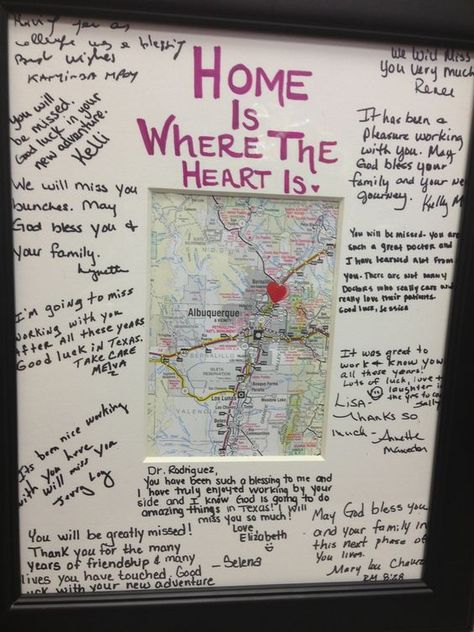 Having you as
colleague was a blessing
Best Wishes
HOME
IS
WHERE THE
HEART IS.
We will miss
you very much
Renee
you will
be missed.
Good luck in your
new adventure.
Kelli
It has been a
pleasure working
with you. May
God bless your
family and your new
journey. Kelly M
We will miss you
bunches. May
God bless you &
your family.
Lynette
You will be missed- you are
such a great doctor and
I have learned alot from
you. There are not many
Doctors who really care and
really love their patients.
Good luck, Jessica
I'm going to miss
working with you
after all these years
Good luck in Texas.
TAKE CARE
MELVA
Albuquerque
BERNALILLO
Los Lunas
VALENCIA
It was great to
work & know you
all these years!
Lots of luck, love +
laughter in
the yrs to come
Sally
LISA-
Thanks so
much - Annette
Its been nice working
with you. We have
will miss you
Dr. Rodriguez,
You have been such a blessing to me and
I have truly enjoyed working by your
side and I know God is going to do
amazing things in Texas! I will
miss you so much!
Love
Elizabeth
You will be greatly missed!
Thank you for the many
years of friendship & many
lives you have touched. Good
luck with your new adventure
-Selena
May God bless you
and your family in
this next phase of
your lives.
Mary Lou